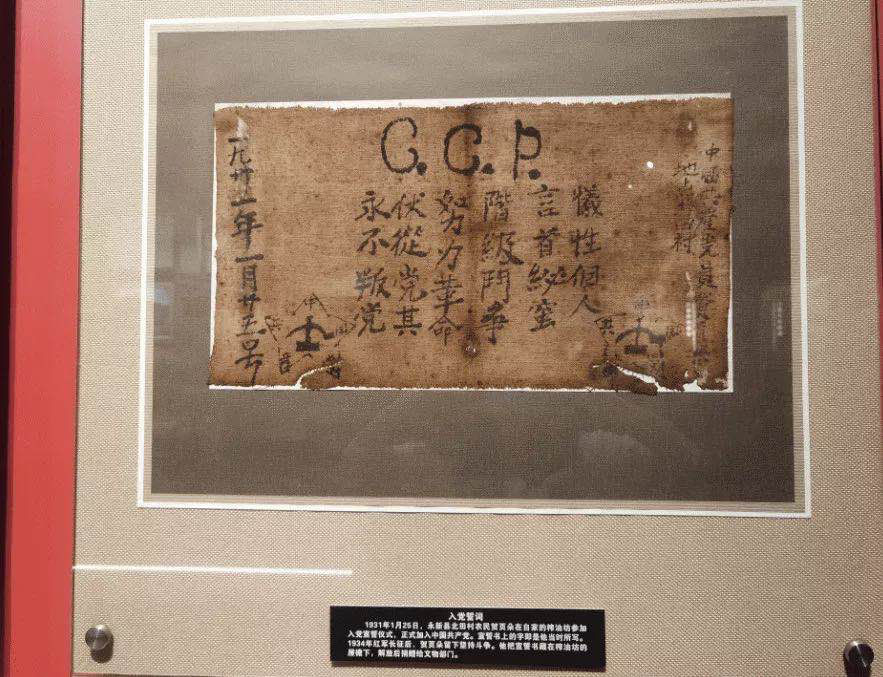 C.C.P.
中國共產党員
地点
村
犧牲個人
言首秘蜜
階級鬥争
努力革命
伏從党其
永不叛党
一九卅一年一月廿五号
入党誓词
1931年1月25日，永新县北田村农民贺页朵在自家的榨油坊参加
入党宣誓仪式，正式加入中国共产党。宣誓书上的字即是他当时所写。
1934年红军长征后，贺页朵留下坚持斗争。他把宣誓书藏在榨油坊的
屋檐下，解放后捐赠给文物部门。